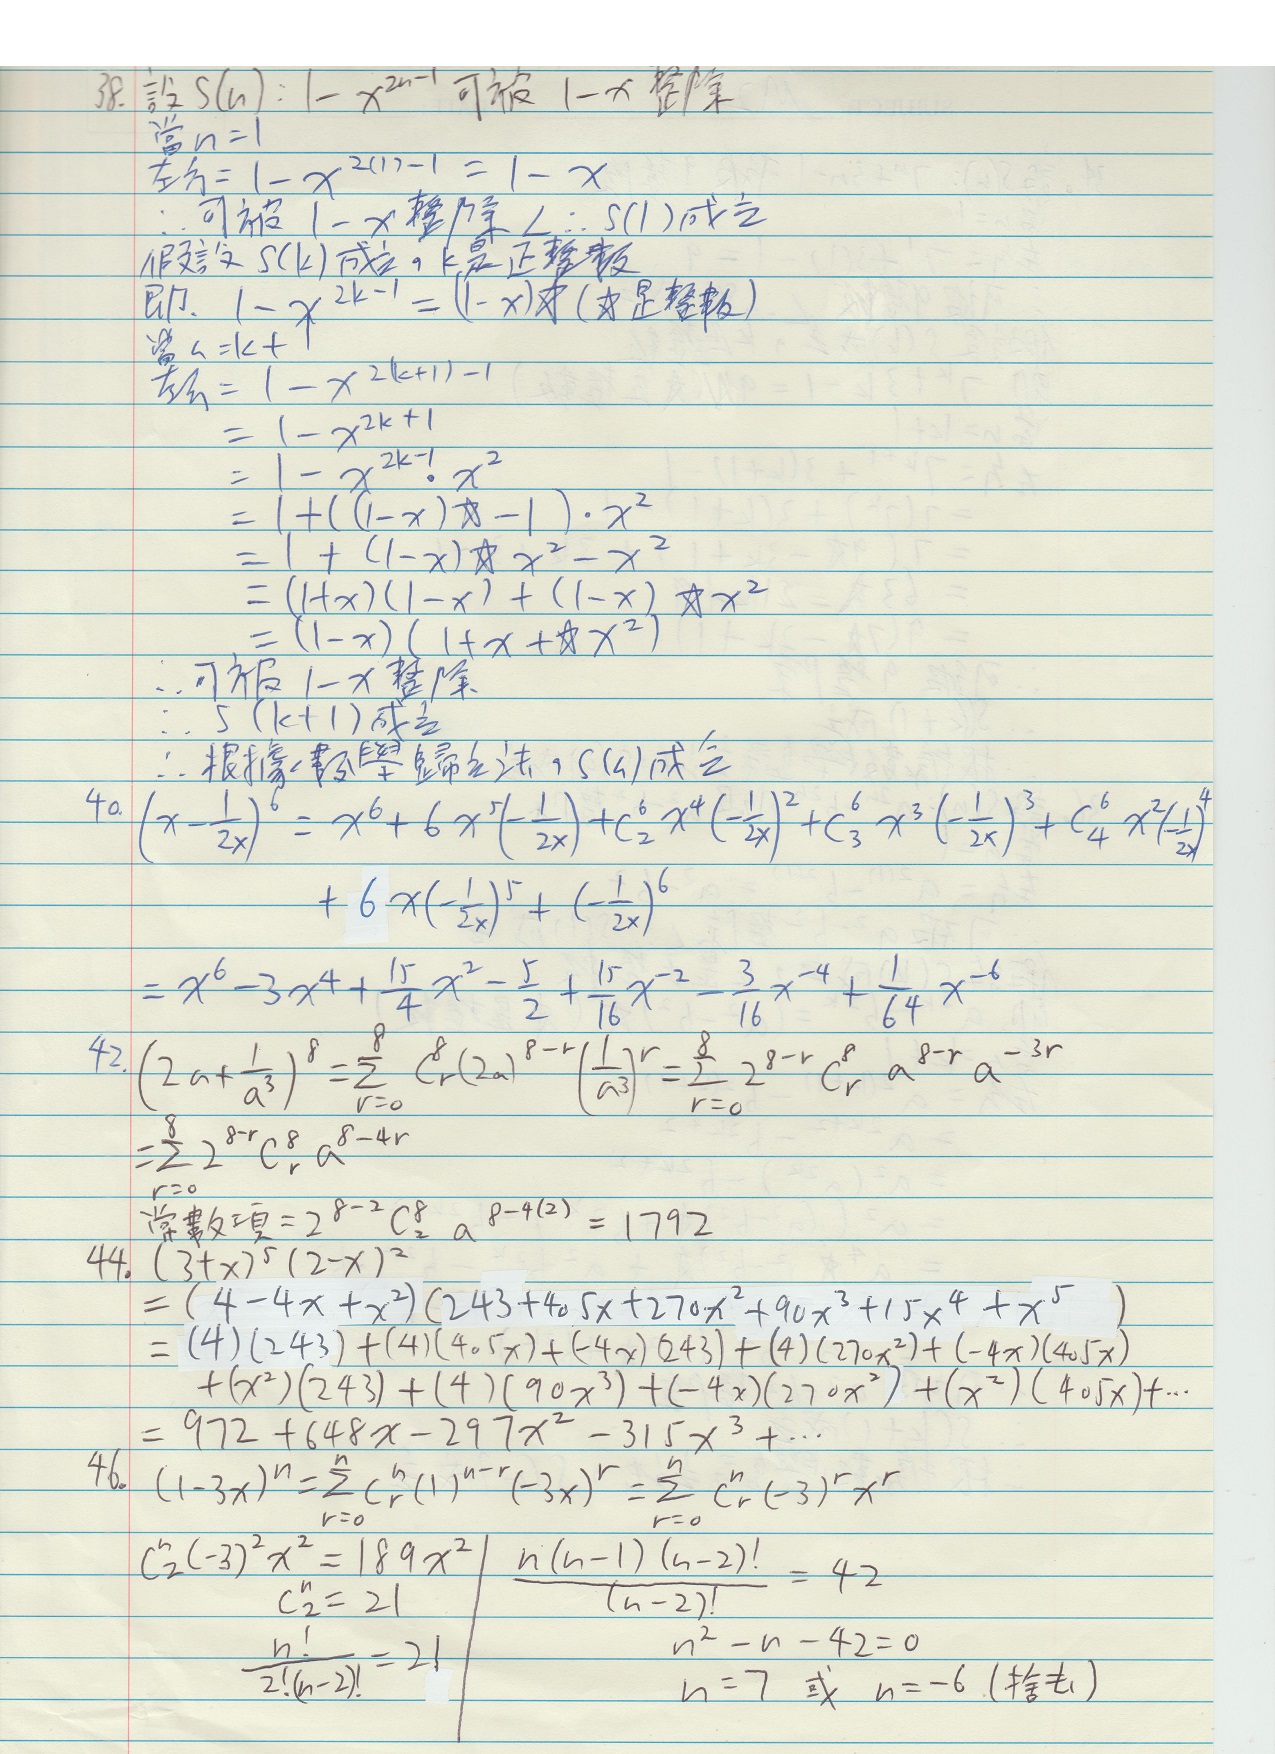 38. 設 S(n): 1 - x^{2n-1} 可被 1-x 整除
當 n = 1
左方 = 1 - x^{2(1)-1} = 1 - x
∴ 可被 1-x 整除 ∴ S(1) 成立
假設 S(k) 成立, k 是正整數
即. 1 - x^{2k-1} = (1-x)☆ (☆ 是整數)
當 n = k+1
左方 = 1 - x^{2(k+1)-1}
= 1 - x^{2k+1}
= 1 - x^{2k-1} · x^2
= 1 + ((1-x)☆ - 1) · x^2
= 1 + (1-x)☆ x^2 - x^2
= (1+x)(1-x) + (1-x) ☆ x^2
= (1-x)(1+x+☆x^2)
∴ 可被 1-x 整除
∴ S(k+1) 成立
∴ 根據數學歸立法, S(n) 成立
40. (x - \frac{1}{2x})^6 = x^6 + 6x^5(-\frac{1}{2x}) + C_2^6 x^4(-\frac{1}{2x})^2 + C_3^6 x^3(-\frac{1}{2x})^3 + C_4^6 x^2(-\frac{1}{2x})^4
+ 6x(-\frac{1}{2x})^5 + (-\frac{1}{2x})^6
= x^6 - 3x^4 + \frac{15}{4}x^2 - \frac{5}{2} + \frac{15}{16}x^{-2} - \frac{3}{16}x^{-4} + \frac{1}{64}x^{-6}
42. (2a + \frac{1}{a^3})^8 = \sum_{r=0}^{8} C_r^8 (2a)^{8-r} (\frac{1}{a^3})^r = \sum_{r=0}^{8} 2^{8-r} C_r^8 a^{8-r} a^{-3r}
= \sum_{r=0}^{8} 2^{8-r} C_r^8 a^{8-4r}
常數項 = 2^{8-2} C_2^8 a^{8-4(2)} = 1792
44. (3+x)^5 (2-x)^2
= (4 - 4x + x^2)(243 + 405x + 270x^2 + 90x^3 + 15x^4 + x^5)
= (4)(243) + (4)(405x) + (-4x)(243) + (4)(270x^2) + (-4x)(405x)
+ (x^2)(243) + (4)(90x^3) + (-4x)(270x^2) + (x^2)(405x) + ...
= 972 + 648x - 297x^2 - 315x^3 + ...
46. (1-3x)^n = \sum_{r=0}^{n} C_r^n (1)^{n-r} (-3x)^r = \sum_{r=0}^{n} C_r^n (-3)^r x^r
C_2^n (-3)^2 x^2 = 189x^2
C_2^n = 21
\frac{n!}{2!(n-2)!} = 21
\frac{n(n-1)(n-2)!}{(n-2)!} = 42
n^2 - n - 42 = 0
n = 7 或 n = -6 (捨去)